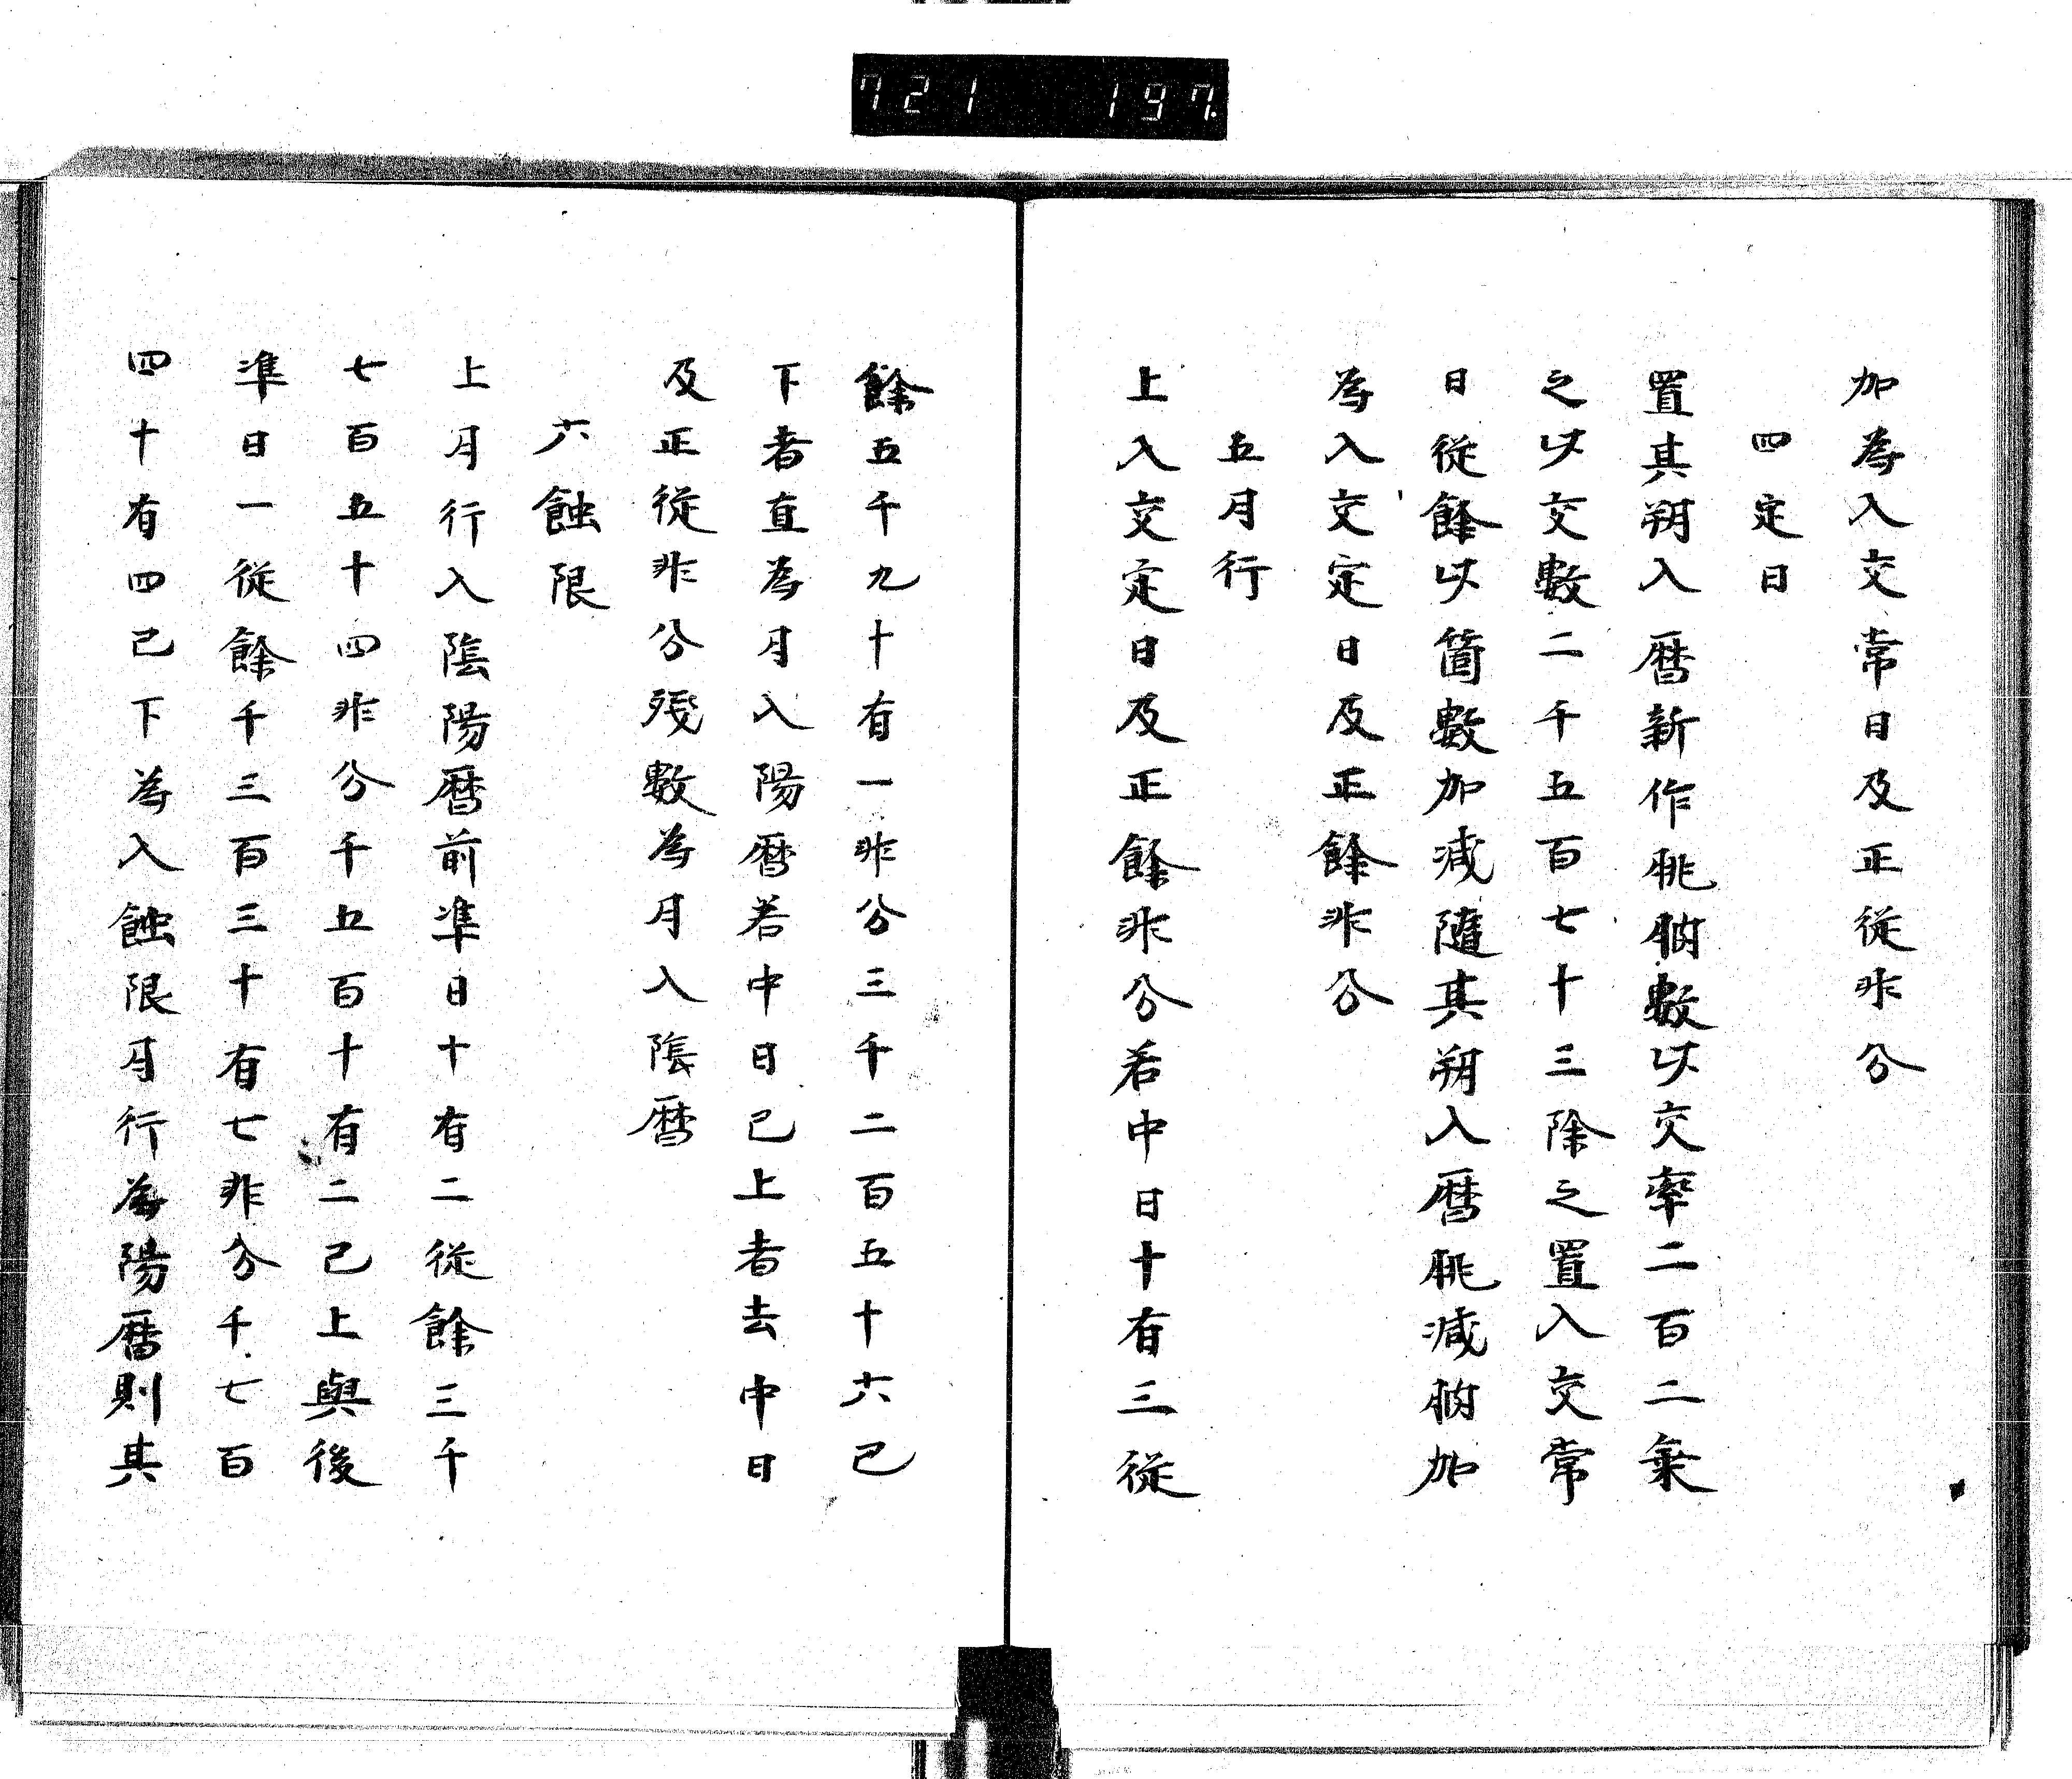 721 197.
加為入交常日及正從非分
四定日
置其朔入曆新作朓朒數以交率二百二乗
之以交數二千五百七十三除之置入交常
日從餘以箇數加減隨其朔入曆朓減朒加
為入交定日及正餘非分
五月行
上入交定日及正餘非分若中日十有三從
餘五千九十有一非分三千二百五十六已
下者直為月入陽曆若中日已上者去中日
及正從非分殘數為月入陰曆
六蝕限
上月行入陰陽曆前準日十有二從餘三千
七百五十四非分千五百十有二已上與後
準日一從餘千三百三十有七非分千七百
四十有四已下為入蝕限月行為陽曆則其